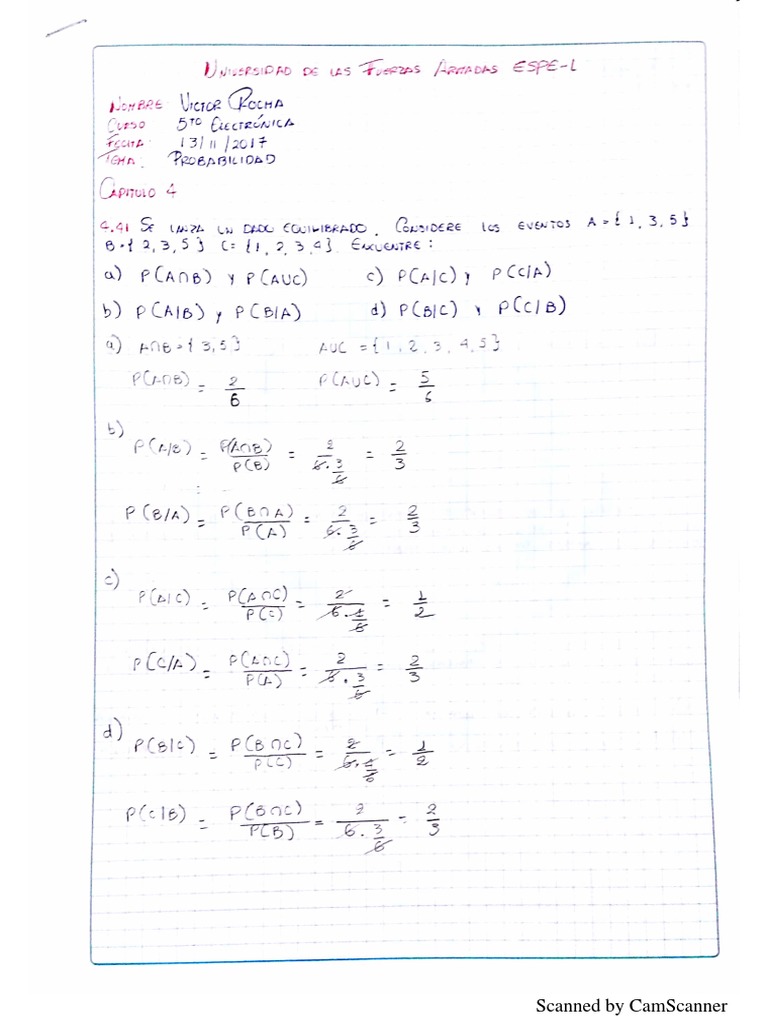 UNIVERSIDAD DE LAS FUERZAS ARMADAS ESPE-L
NOMBRE: VICTOR ROCHA
CURSO 5TO ELECTRÓNICA
FECHA: 13/11/2017
TEMA: PROBABILIDAD
CAPITULO 4
4.41 SE LANZA UN DADO EQUILIBRADO. CONSIDERE LOS EVENTOS A={1,3,5}
B={2,3,5} C={1,2,3,4}. ENCUENTRE:
a) P(A∩B) y P(AUC) c) P(A/C) y P(C/A)
b) P(A/B) y P(B/A) d) P(B/C) y P(C/B)
a) A∩B={3,5} AUC={1,2,3,4,5}
P(A∩B) = 2/6 P(AUC) = 5/6
b) P(A/B) = P(A∩B)/P(B) = 2/(6·3/6) = 2/3
P(B/A) = P(B∩A)/P(A) = 2/(6·3/6) = 2/3
c) P(A/C) = P(A∩C)/P(C) = 2/(6·4/6) = 1/2
P(C/A) = P(A∩C)/P(A) = 2/(6·3/6) = 2/3
d) P(B/C) = P(B∩C)/P(C) = 2/(6·4/6) = 1/2
P(C/B) = P(B∩C)/P(B) = 2/(6·3/6) = 2/3
Scanned by CamScanner